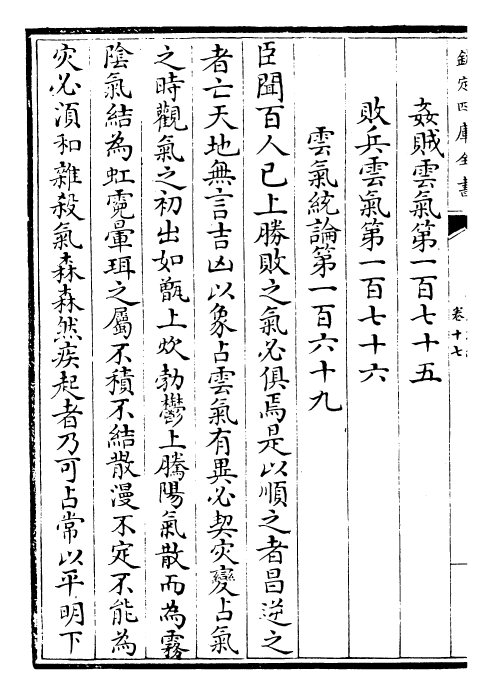 欽定四庫全書
卷十七
姦賊雲氣第一百七十五
敗兵雲氣第一百七十六
雲氣統論第一百六十九
臣聞百人已上勝敗之氣必俱焉是以順之者昌逆之
者亡天地無言吉凶以象占雲氣有異必契災變占氣
之時觀氣之初出如甑上炊勃鬱上騰陽氣散而為霧
陰氣結為虹霓暈珥之屬不積不結散漫不定不能為
災必湏和雜殺氣森森然疾起者乃可占常以平明下